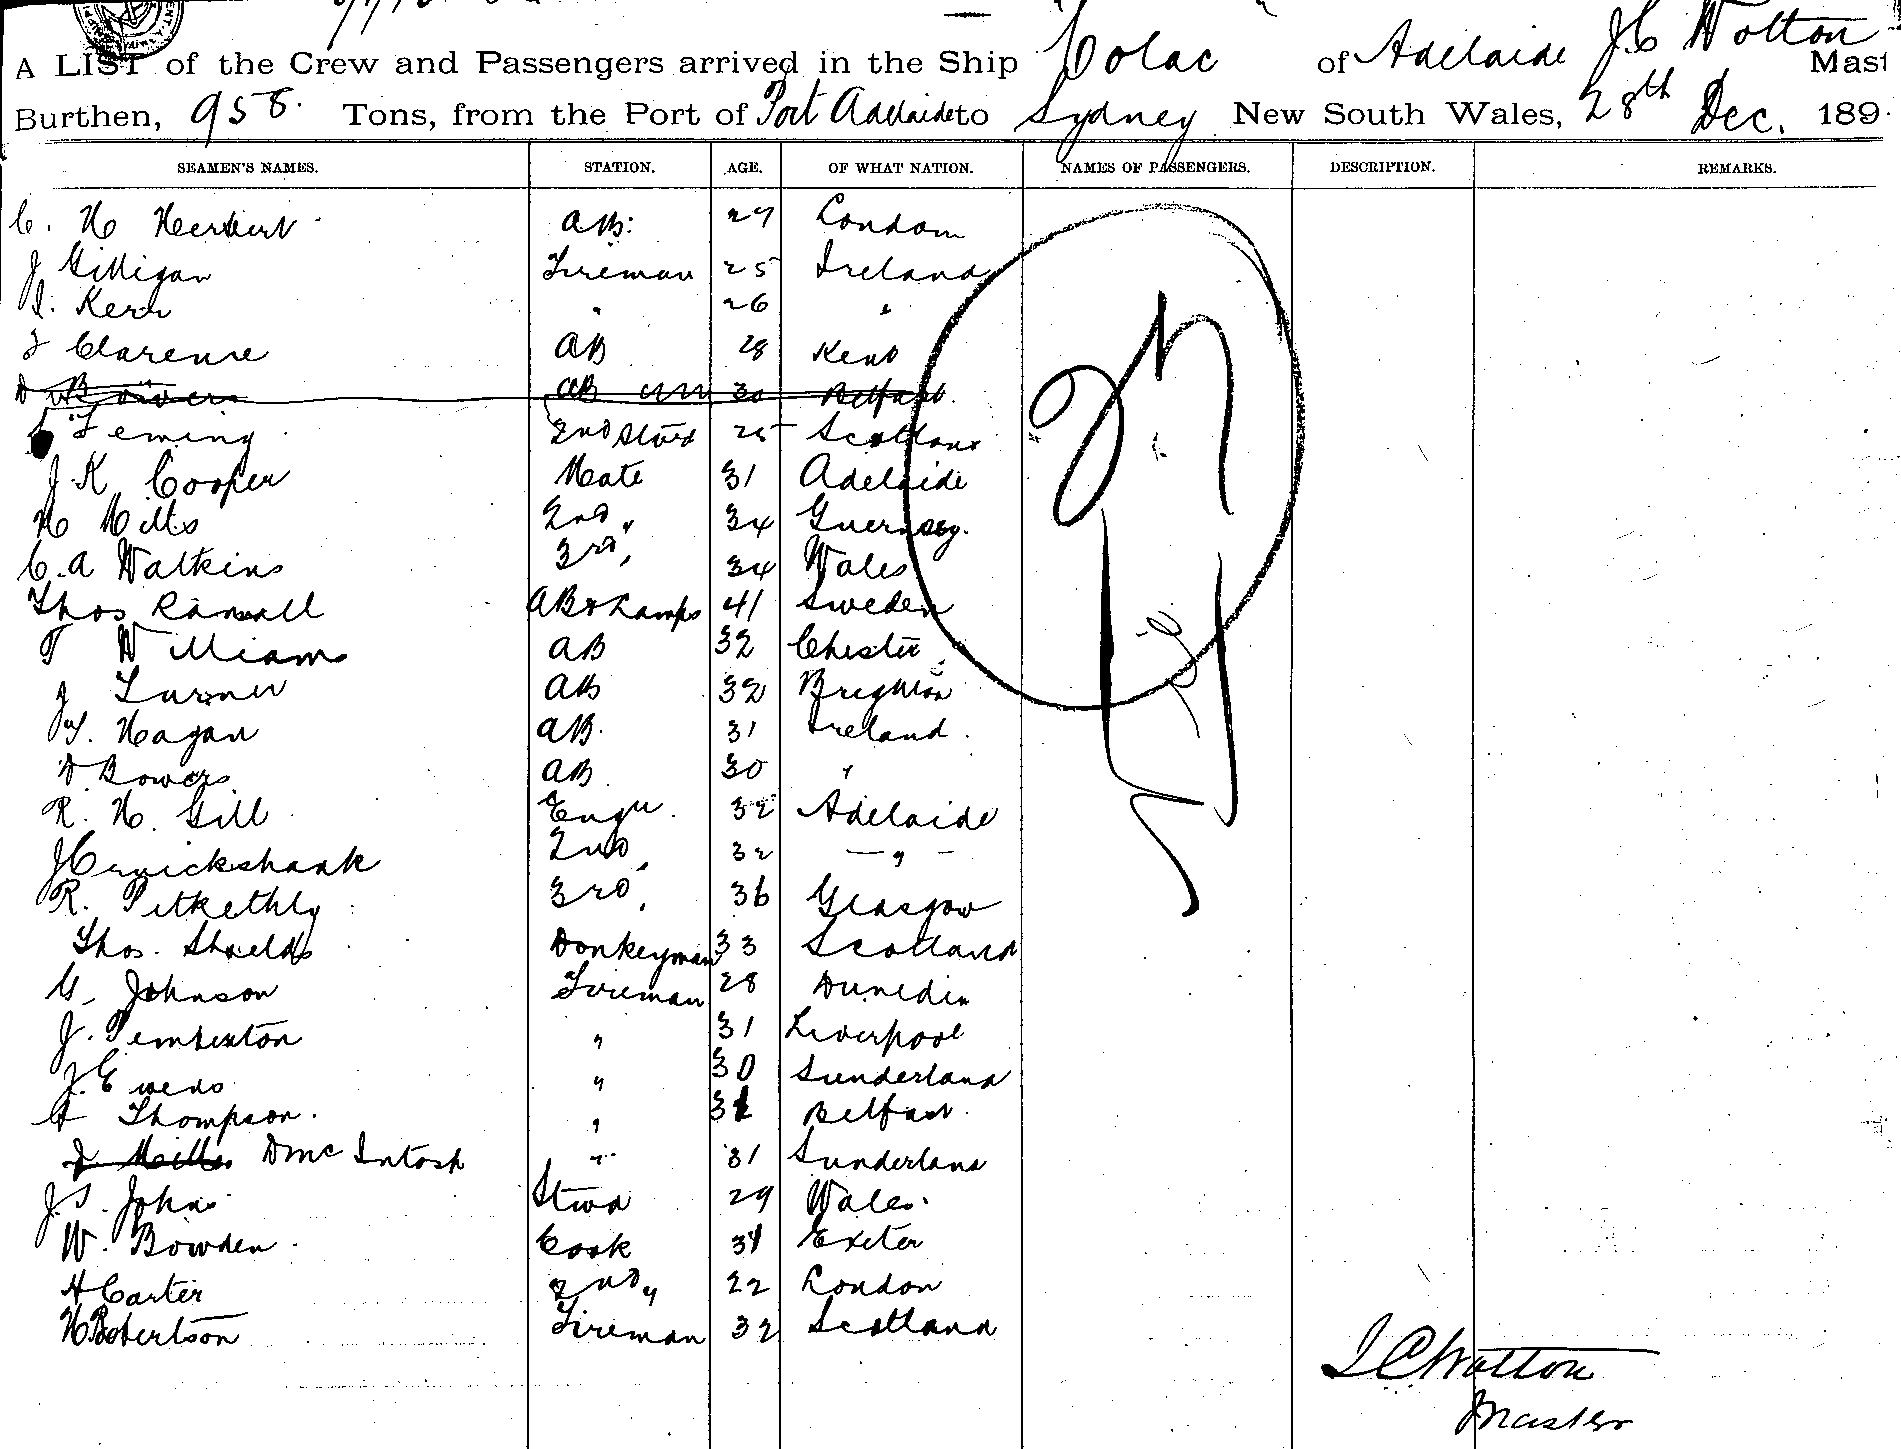 A LIST of the Crew and Passengers arrived in the Ship "Colac" of Adelaide J C Wotton Mast
Burthen, 958. Tons, from the Port of Port Adelaide to Sydney New South Wales, 28th Dec. 189
SEAMEN'S NAMES. STATION. AGE. OF WHAT NATION. NAMES OF PASSENGERS. DESCRIPTION. REMARKS.
C. H Herbert AB. 27 London
J Gilligan Fireman 25 Ireland
J. Kerr " 26 "
J Clarence AB 28 Kent
D Bowers AB 30 Belfast
Fleming 2nd Stwd 25 Scotland
J. K Cooper Mate 31 Adelaide
H Mills 2nd " 34 Guernsey.
C. A Watkins 3rd " 34 Wales
Thos AB & Lamps 41 Sweden
T William AB 32 Chester
J Turner AB 32 Brighton
Hagan AB. 31 Ireland.
D Bowers AB 30 "
R. H. Gill Engr. 32 Adelaide
J Cruickshank 2nd " 32 — " —
R. Pitkethly 3rd " 36 Glasgow
Thos. Shields Donkeyman 33 Scotland
G. Johnson Fireman 28 Dunedin
J. Pemberton " 31 Liverpool
J. Ewens " 30 Sunderland
A Thompson. " Belfast.
J Mills D McIntosh " 31 Sunderland
J. S. John Stwd 29 Wales.
W. Bowden Cook Exeter
H Carter 2nd " 22 London
H Robertson Fireman 32 Scotland
27
J C Wotton
Master